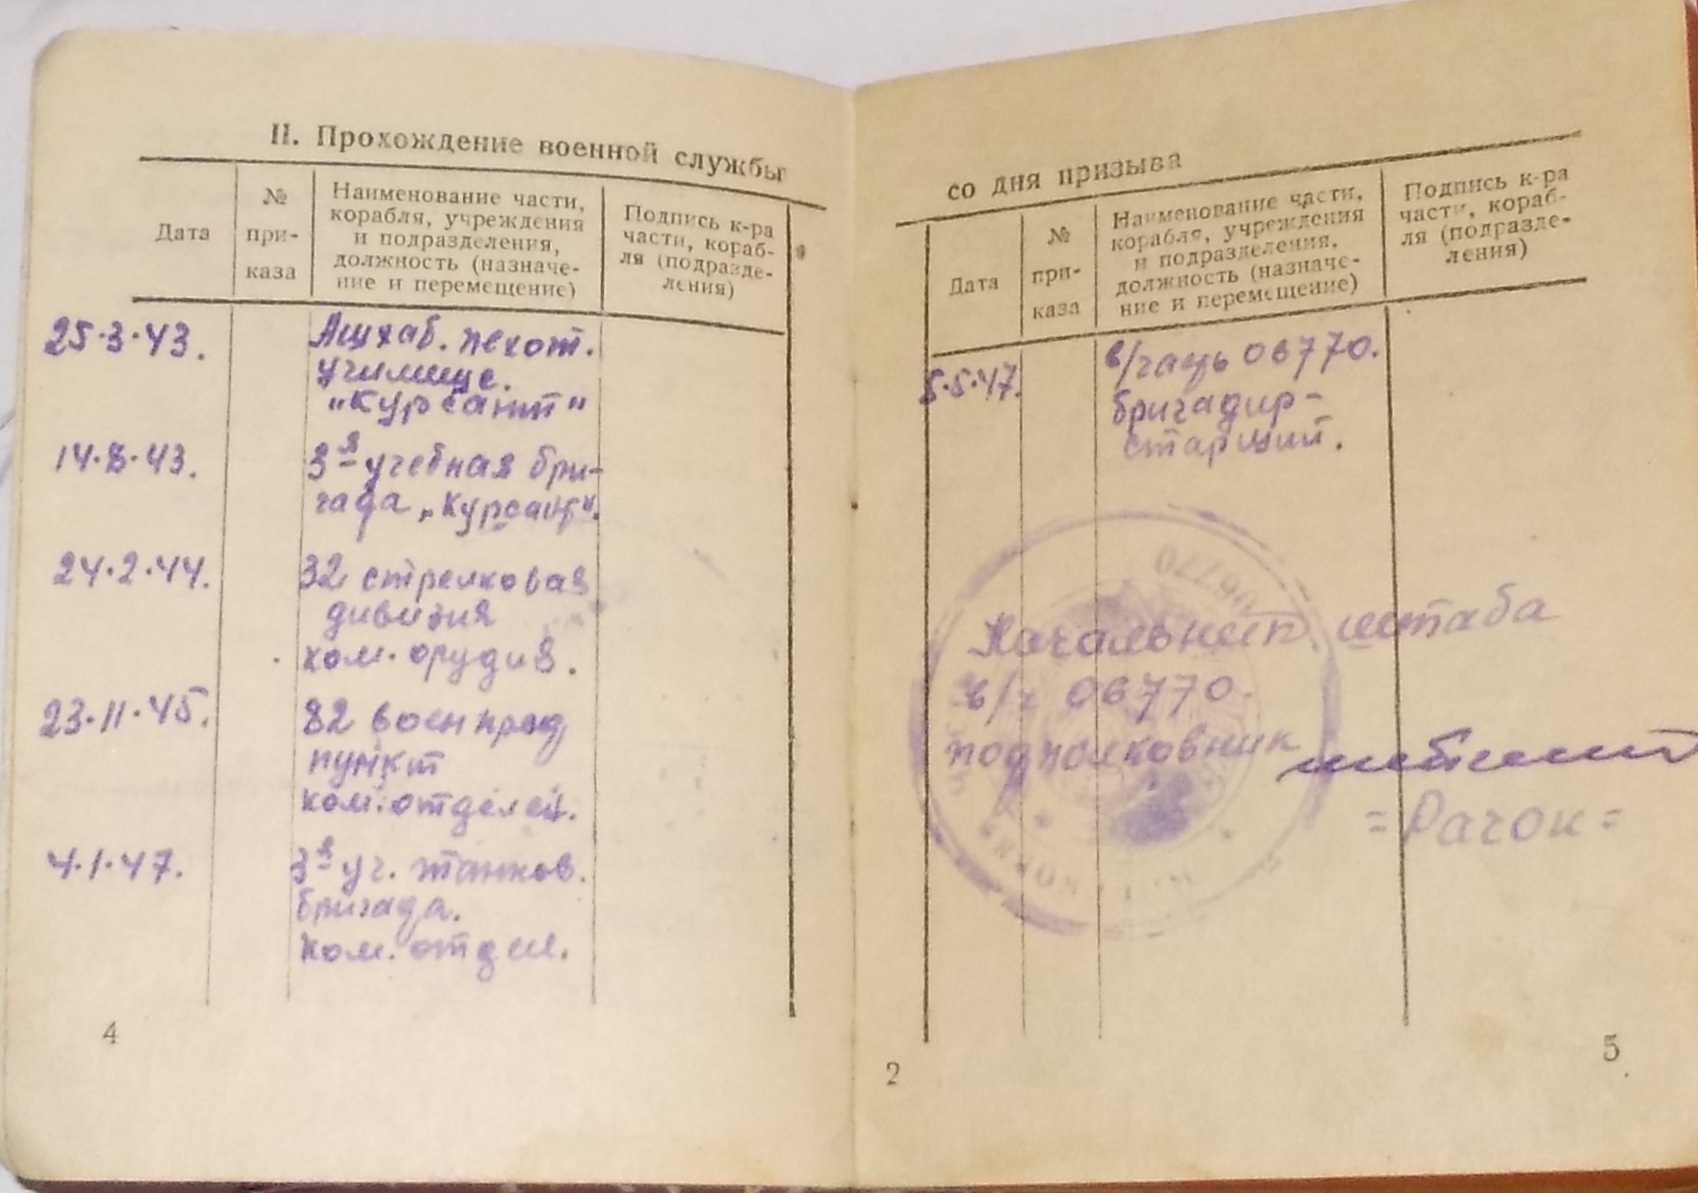 II. Прохождение военной службы
Дата
№
при-
каза
Наименование части,
корабля, учреждения
и подразделения,
должность (назначе-
ние и перемещение)
Подпись к-ра
части, кораб-
ля (подразде-
ления)
25·3·43.
Ашхаб. пехот.
училище.
"Курсант"
14·8·43.
3я учебная бри-
гада „Курсант".
24·2·44.
32 стрелковая
дивизия
ком. орудия.
23·11·45.
82 воен прод
пункт
ком. отделен.
4·1·47.
3я уч. танков.
бригада.
ком. отдел.
4
со дня призыва
Дата
№
при-
каза
Наименование части,
корабля, учреждения
и подразделения,
должность (назначе-
ние и перемещение)
Подпись к-ра
части, кораб-
ля (подразде-
ления)
5·5·47.
в/часть 06770.
бригадир-
старший.
06770
Начальник штаба
в/ч 06770.
подполковник
=Рагок=
2
5